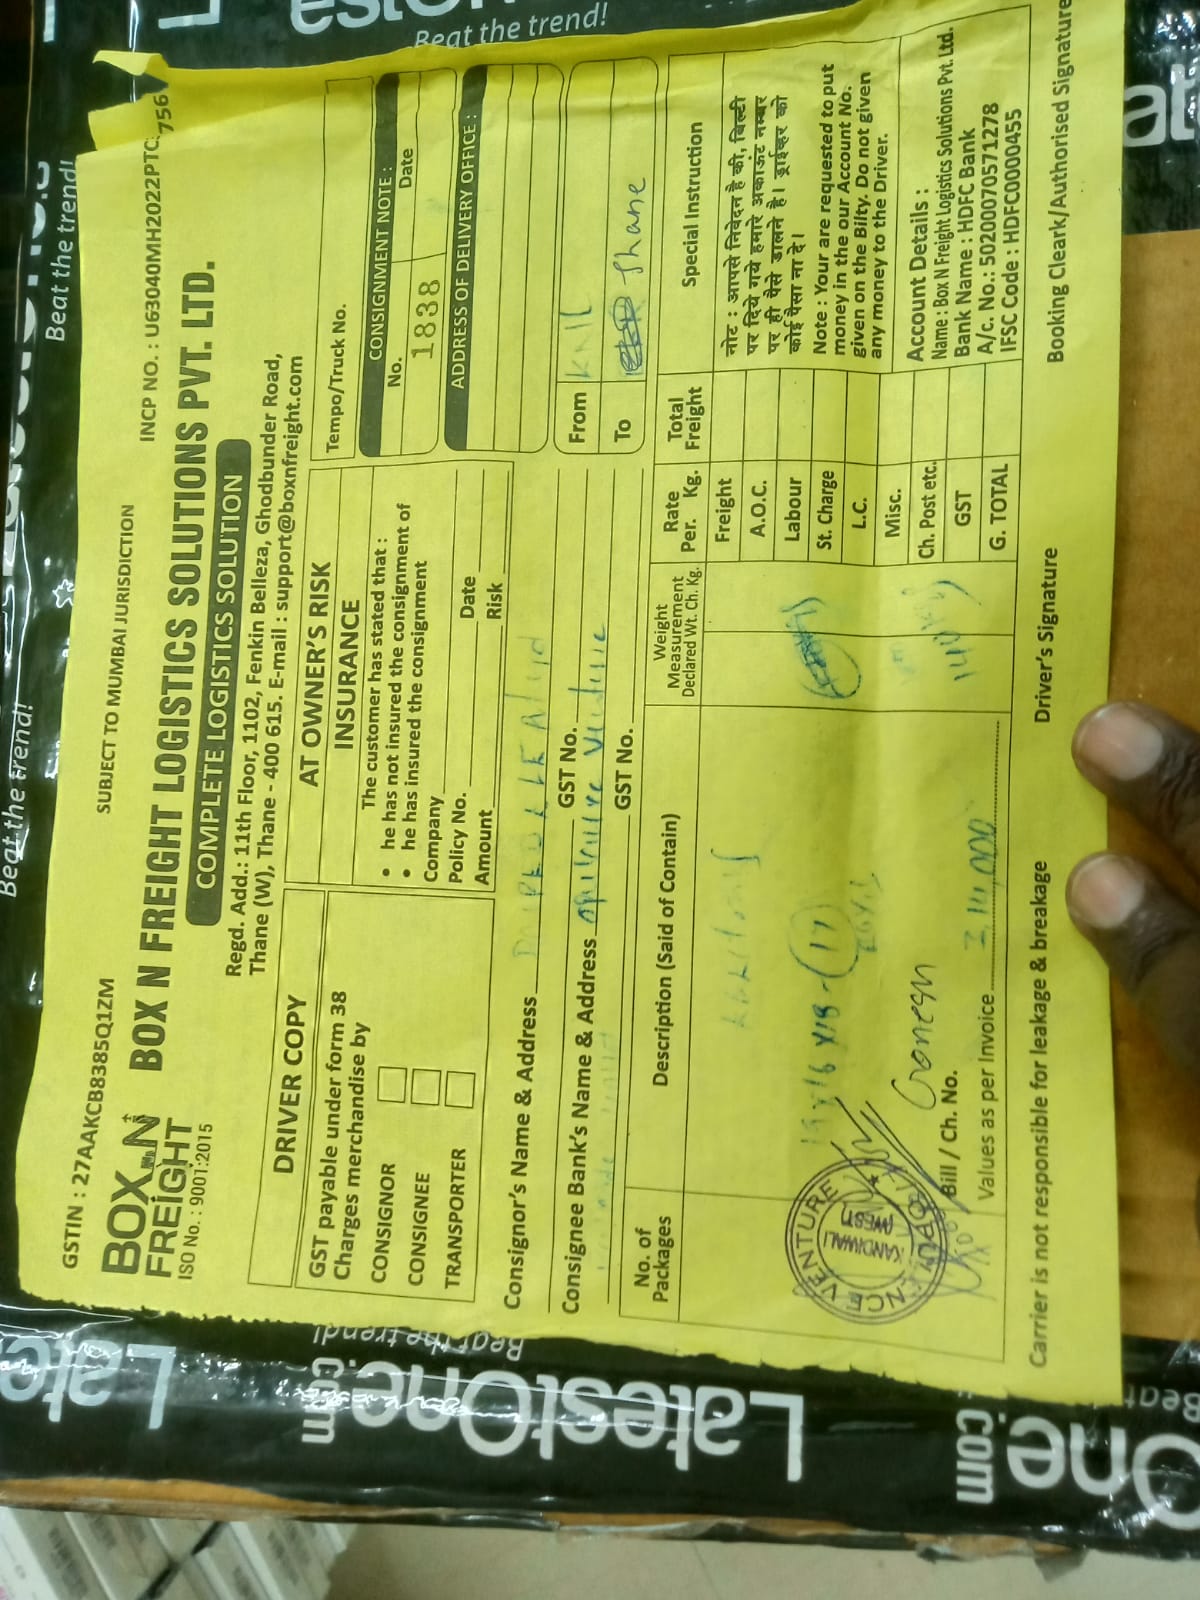 GSTIN : 27AAKCB8385Q1ZM
SUBJECT TO MUMBAI JURISDICTION
INCP NO. : U63040MH2022PTC
756
BOX N
FREIGHT
ISO No. : 9001:2015
BOX N FREIGHT LOGISTICS SOLUTIONS PVT. LTD.
COMPLETE LOGISTICS SOLUTION
Regd. Add.: 11th Floor, 1102, Fenkin Belleza, Ghodbunder Road,
Thane (W), Thane - 400 615. E-mail : support@boxnfreight.com
DRIVER COPY
GST payable under form 38
Charges merchandise by
CONSIGNOR
CONSIGNEE
TRANSPORTER
AT OWNER'S RISK
INSURANCE
The customer has stated that :
• he has not insured the consignment of
• he has insured the consignment
Company
Policy No. Date
Amount Risk
Tempo/Truck No.
CONSIGNMENT NOTE :
No. 1838 Date
ADDRESS OF DELIVERY OFFICE :
Consignor's Name & Address
GST No.
Consignee Bank's Name & Address
GST No.
From
To
No. of Packages
Description (Said of Contain)
Weight Measurement Declared Wt. Ch. Kg.
Rate Per. Kg.
Total Freight
Special Instruction
Freight
A.O.C.
Labour
St. Charge
L.C.
Misc.
Ch. Post etc.
GST
G. TOTAL
नोट : आपसे निवेदन है की, बिल्टी
पर दिये गये हमारे अकाऊंट नम्बर
पर ही पैसे डालने है। ड्राईव्हर को
कोई पैसा ना दे।
Note : Your are requested to put
money in the our Account No.
given on the Bilty. Do not given
any money to the Driver.
Account Details :
Name : Box N Freight Logistics Solutions Pvt. Ltd.
Bank Name : HDFC Bank
A/c. No.: 50200070571278
IFSC Code : HDFC0000455
VENTURE
KANDIWALI
(WEST)
Bill / Ch. No.
Values as per Invoice
Carrier is not responsible for leakage & breakage
Driver's Signature
Booking Cleark/Authorised Signature
Beat the trend!
Beat the trend!
Beat the trend!
Beat the trend!
LatestOne
.com
One
.com